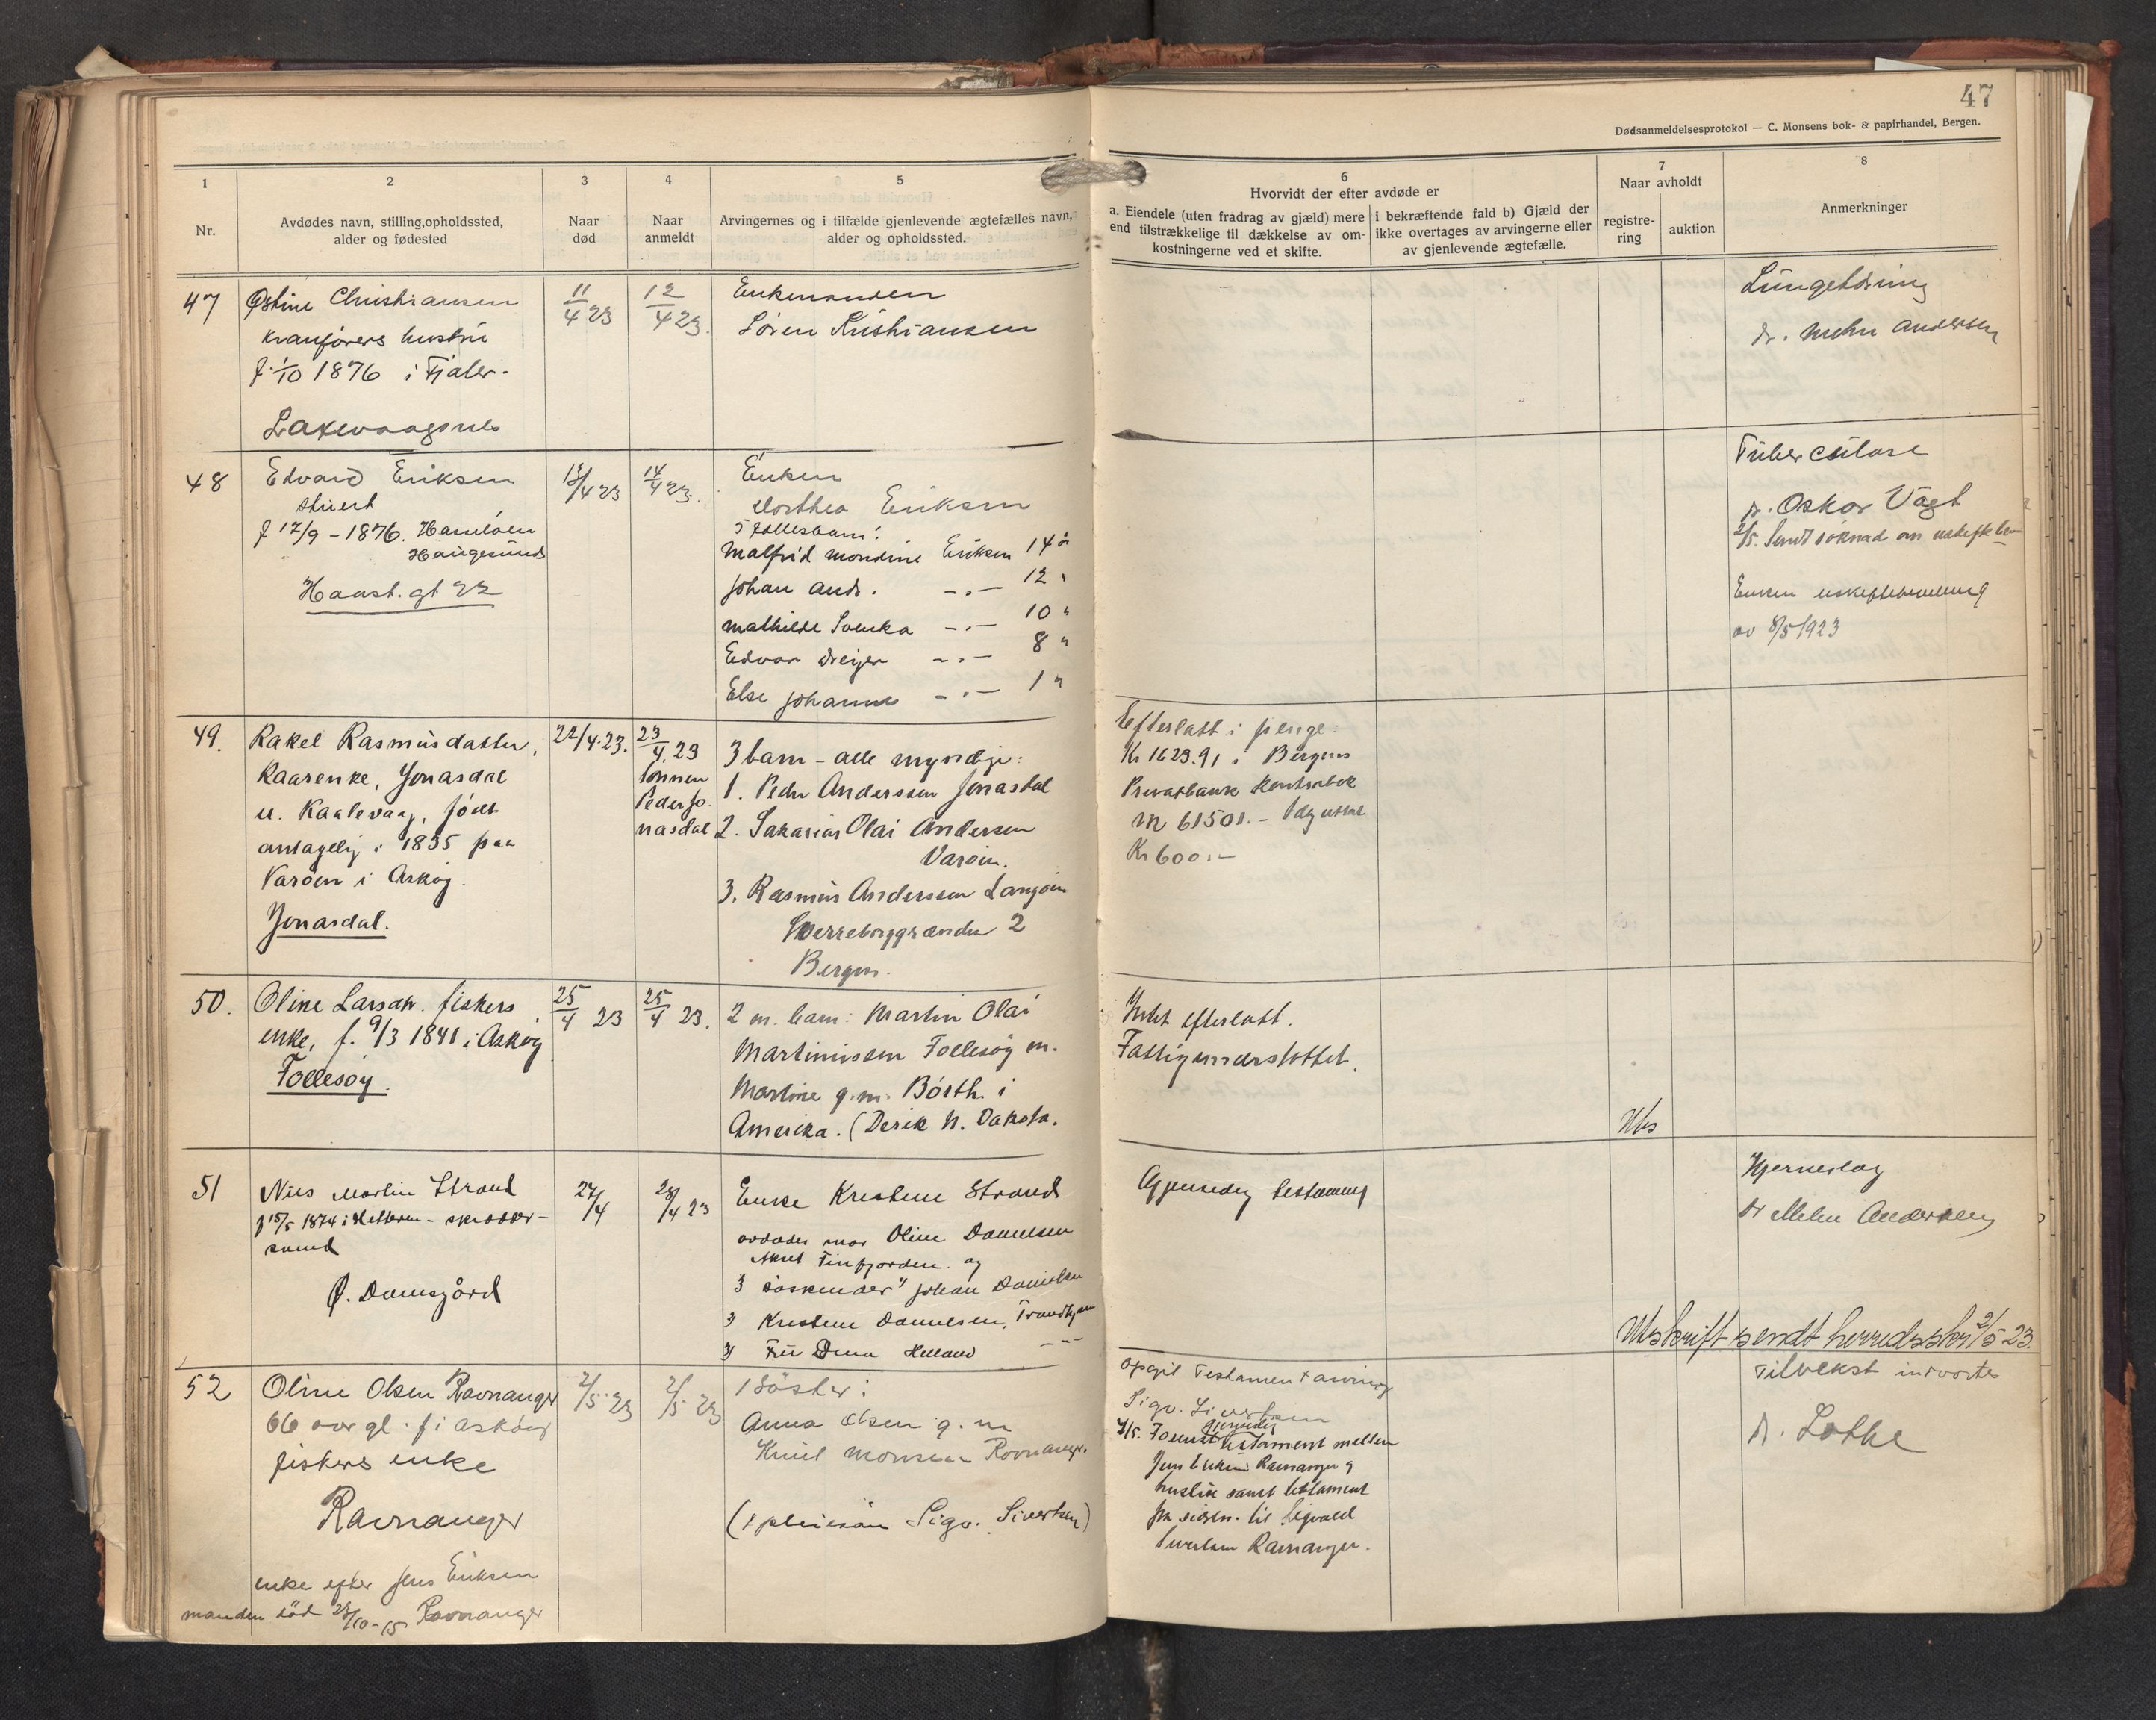 47
Dødsanmeldelsesprotokol — C. Monsens bok- & papirhandel, Bergen.
1
Nr.
2
Avdødes navn, stilling, opholdssted,
alder og fødested
3
Naar
død
4
Naar
anmeldt
5
Arvingernes og i tilfælde gjenlevende ægtefælles navn,
alder og opholdssted.
6
Hvorvidt der efter avdøde er
a. Eiendele (uten fradrag av gjæld) mere
end tilstrækkelige til dækkelse av om-
kostningerne ved et skifte.
i bekræftende fald b) Gjæld der
ikke overtages av arvingerne eller
av gjenlevende ægtefælle.
7
Naar avholdt
registre-
ring
auktion
8
Anmerkninger
47
Østine Christiansen
kranførers hustru
f. 1/10 1876 i Fjaler.
Laxevaagsnes
11/4 23
12/4 23.
Enkemanden
Søren Kristiansen
Lungetæring
dr. Mohn Andersen
48
Edvard Eriksen
stuert
f 17/9 - 1876.
Haugesund
Haast. gt 22
13/4 23
14/4 23.
Enken
Dorthea Eriksen
5 fællesbarn:
Malfrid Mondine Eriksen 14 år
Johan Andr. -"- 12 "
Mathilde Svenka -"- 10 "
Edvar Dreyer -"- 8 "
Else Johanne -"- 1 "
Tuberculose
dr. Oskar Vågt
2/5. Sendt søknad om uskiftebev
Enken uskiftebevilling
av 8/5 1923
49.
Rakel Rasmusdatter,
kaarenke, Jonasdal
u. Kaalevaag, født
antagelig i 1835 paa
Varøen i Askøy.
Jonasdal.
22/4.23.
23/4.23
sønnen
Peder Jo-
nasdal
3 barn - alle myndige:
1. Peder Anderssen Jonasdal
2. Sakarias Olai Andersen
Varøen.
3. Rasmus Anderssen Langøen
Sverreborggrænden 2
Bergen.
Efterlatt i penge:
Kr 1623.91 i Bergens
Privatbank kontrabok
nr 61501. -
Kr 600.-
50.
Oline Larsdtr. fiskers
enke, f. 9/3 1841 i Askøy
Follesøy.
25/4 23
25/4 23.
2 m. barn: Martin Olai
Martinussen Follesøy m.
Martine g.m. Børth i
Amerika. (Derik N. Dakota.
Intet efterlatt.
Fattigunderstøttet.
Uts
51
Nils Martin Strand
f 15/5 1874 i Hetteren - skrooer-
sund
Ø. Damsgård
27/4
28/4 23
Enke Kristine Strand
avdødes mor Oline Danielsen
Aksel Finfjorden. og
3 søskender" Johan Danielsen
3 Kristine Danielsen, Trondhjem
3) Fru Dina Helland -"-
Gjensidig testament
Hjerneslag
Dr Mohn Andersen
Utskrift sendt herredsskr. 2/5 23.
52
Oline Olsen Ravnanger
66 aar gl. f i Askøy
fiskers enke
Ravnanger
enke efter Jens Eriksen
manden død 23/10-15 Ravnanger
2/5.23
2/5 23
1 søster:
Anna Olsen g. m
Knut Monsen Ravnanger.
(+ pleiesøn Sigv. Sivertsen)
opgit Testamentarving
Sigv. Sivertsen
4/5. Forevist gjensidig testament mellem
Jens Eriksen Ravnanger og
hustru samt testament
fra sidstn. til Sigvald
Sivertsen Ravnanger.
Tilvekst indvortes
dr. Lothe